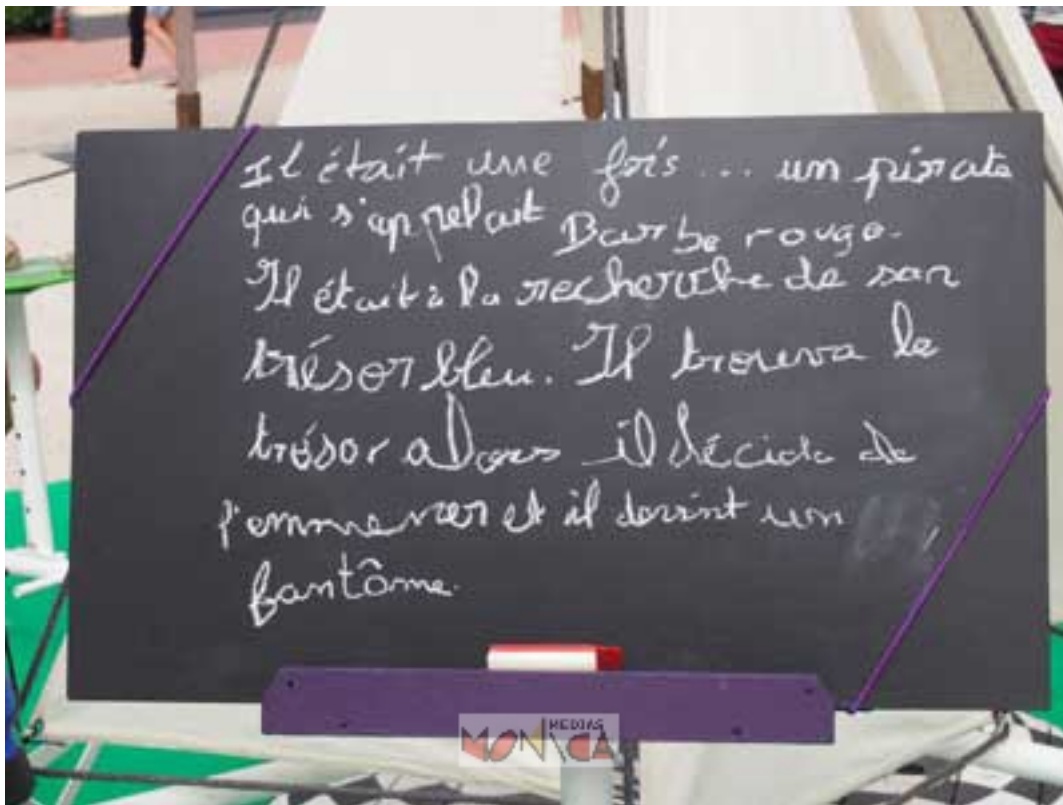 Il était une fois... un pirate
qui s'appelait Barbe rouge.
Il était à la recherche de son
trésor bleu. Il trouva le
trésor alors il décida de
l'emmener et il devint un
fantôme.
MEDIAS
MONICA